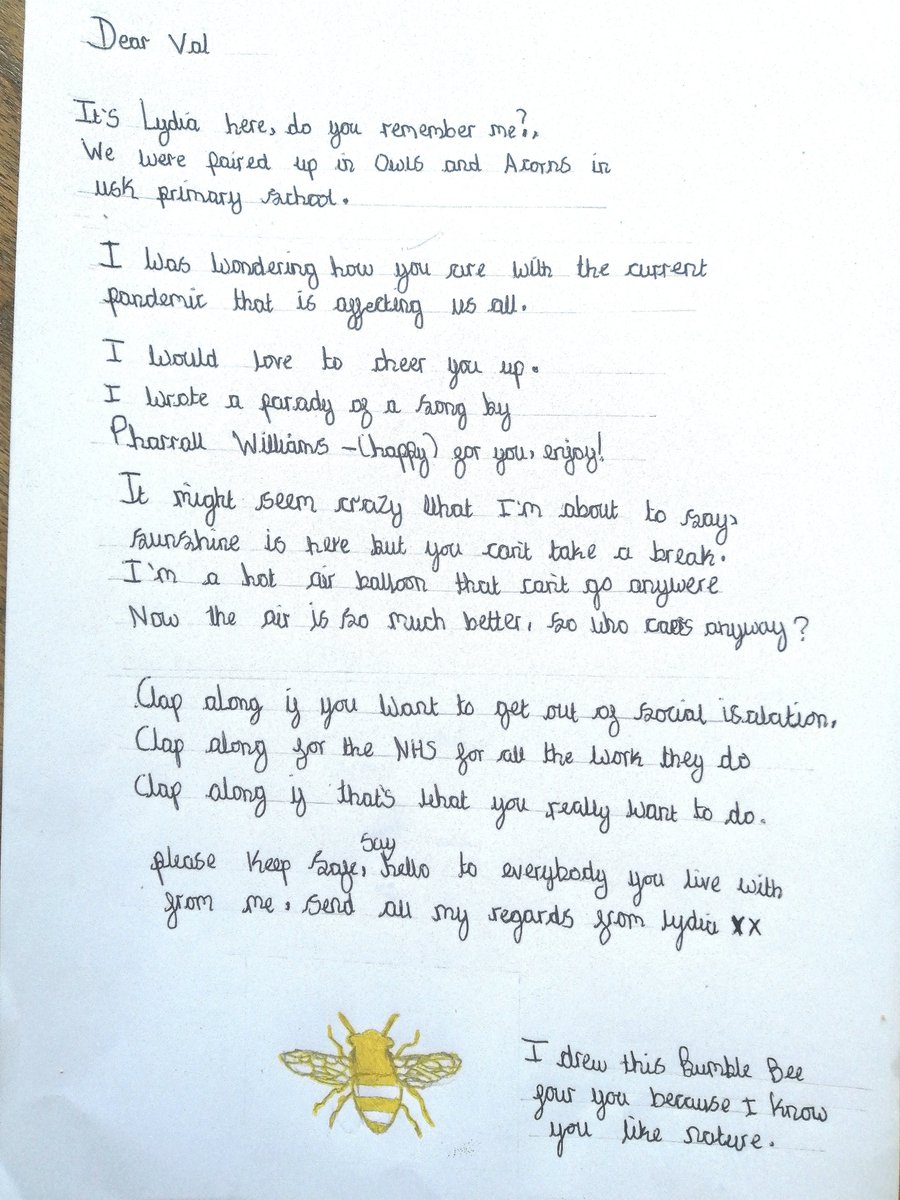 Dear Val
It's Lydia here, do you remember me?,
We were paired up in Owls and Acorns in
usk primary school.
I was wondering how you are with the current
pandemic that is affecting us all.
I would love to cheer you up.
I wrote a parady of a song by
Pharrall Williams -(happy) for you, enjoy!
It might seem crazy what I'm about to say,
sunshine is here but you can't take a break.
I'm a hot air balloon that can't go anywere
Now the air is so much better, so who cares anyway?
Clap along if you want to get out of social isalation.
Clap along for the NHS for all the work they do
Clap along if that's what you really want to do.
please keep safe, say hello to everybody you live with
from me. send all my regards from lydia xx
I drew this Bumble Bee
four you because I know
you like nature.